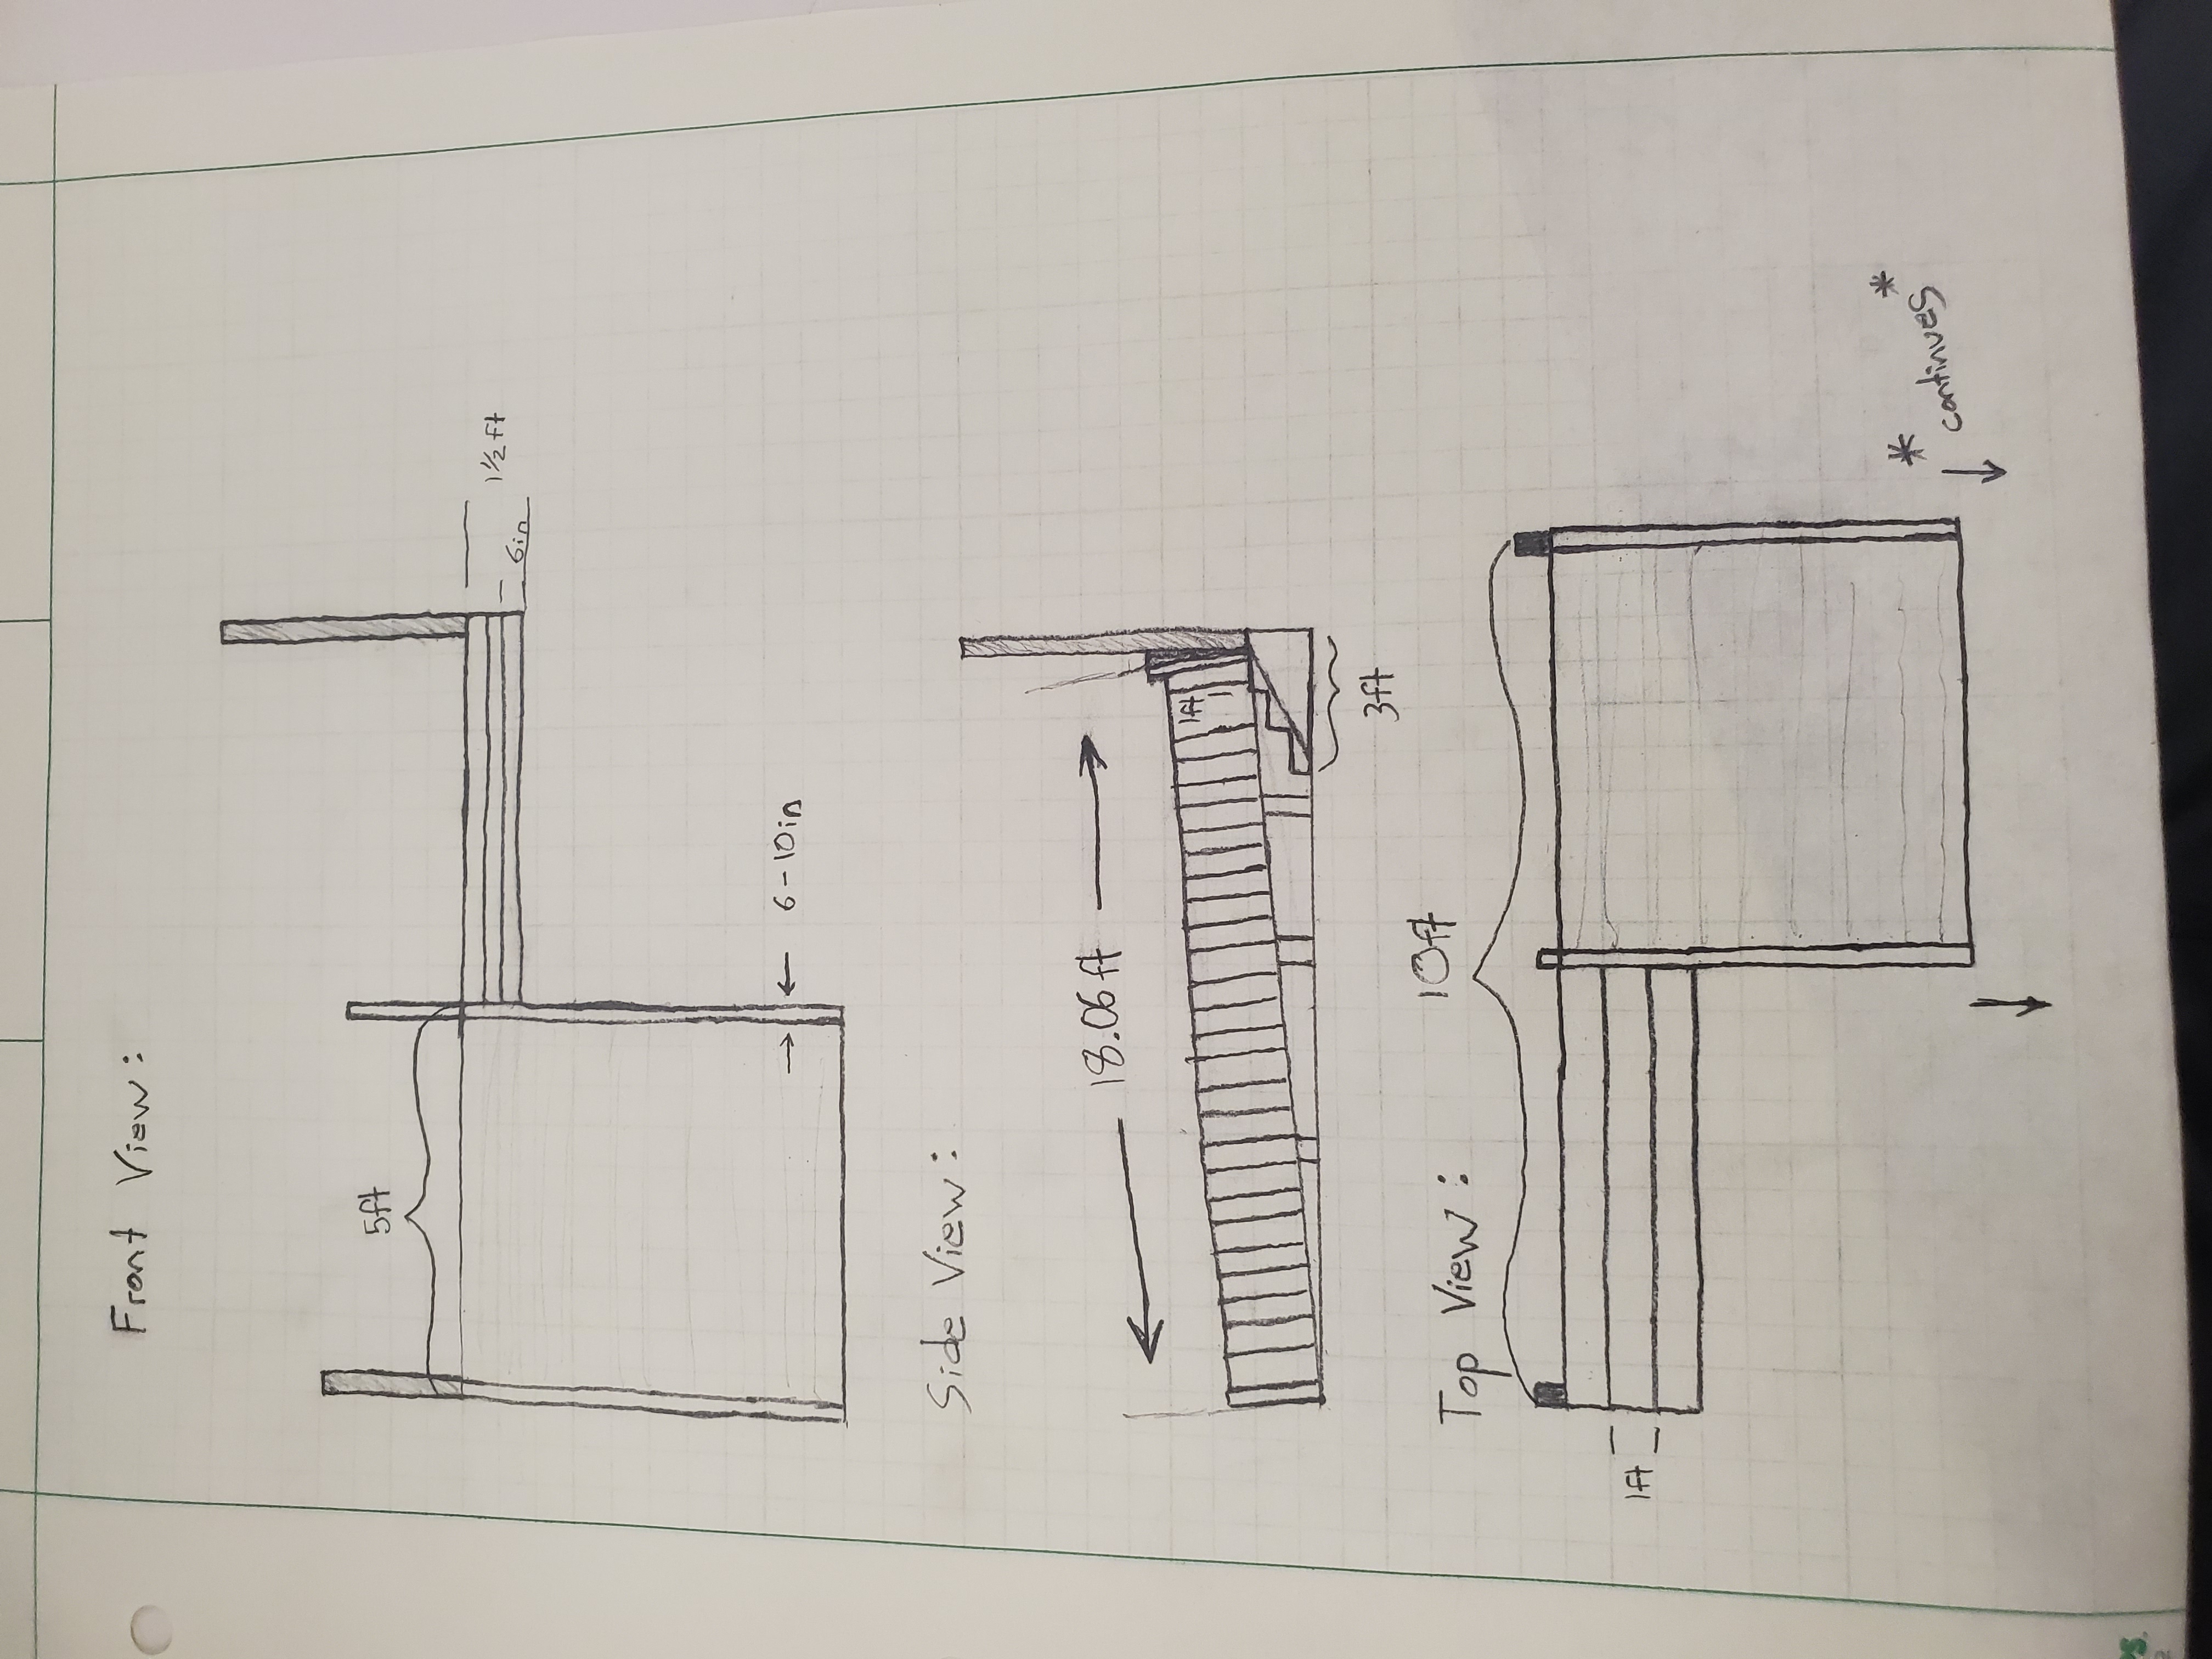 Front View:
5ft
1 1/2 ft
6in
6-10in
Side View:
18.06 ft
1ft
3ft
Top View:
10ft
1ft
* continues *